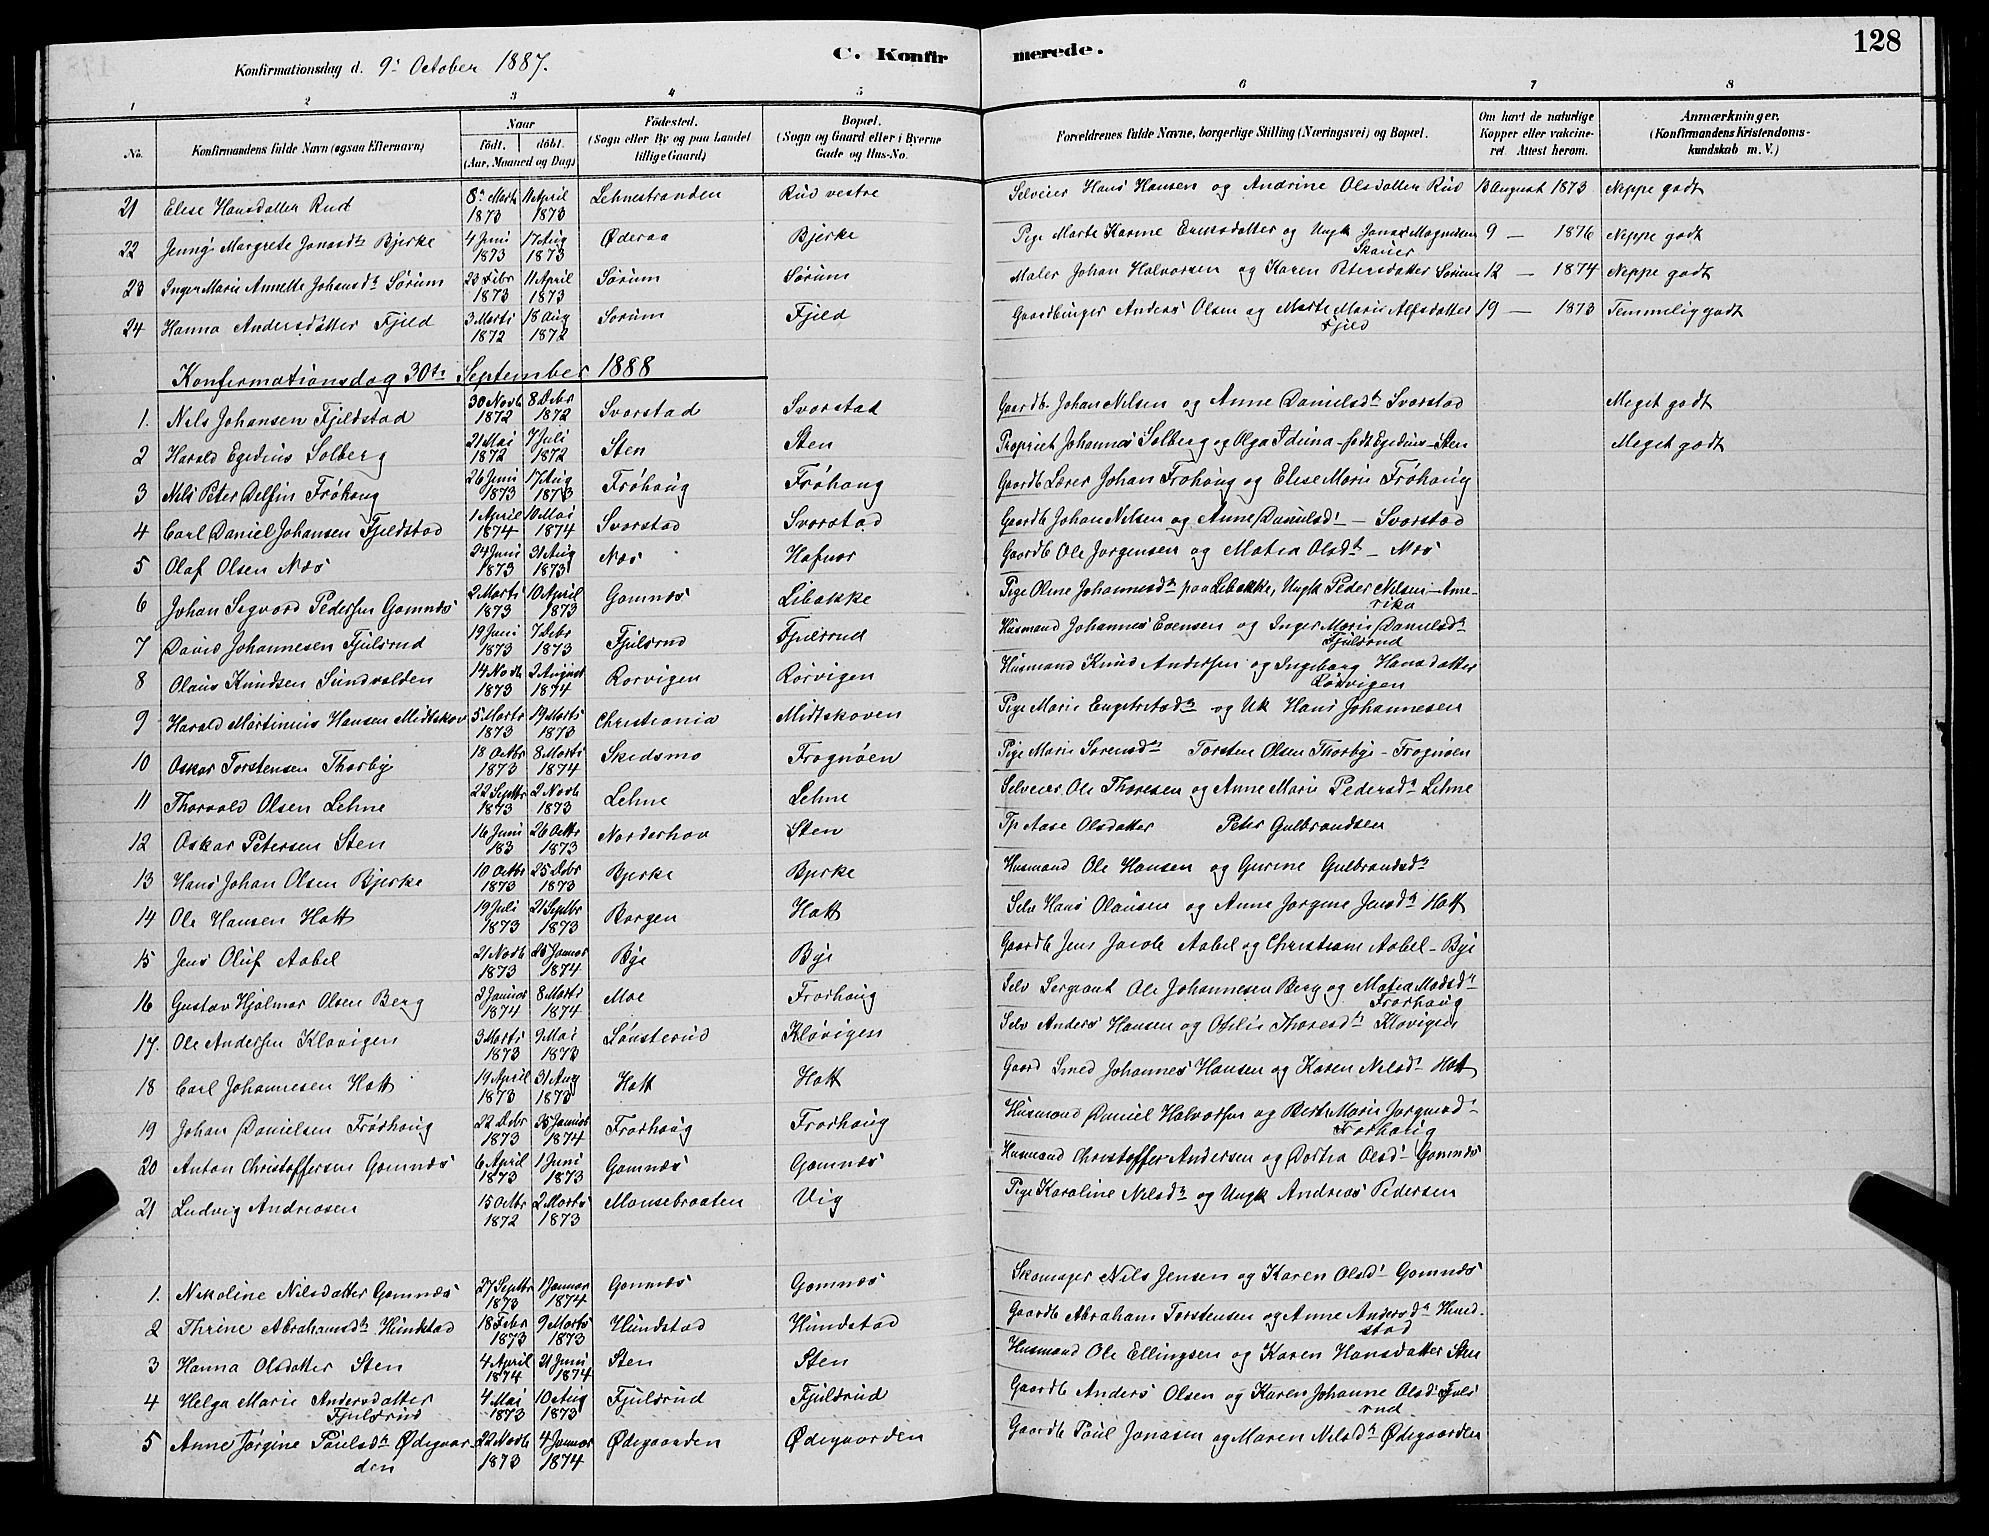 128
Konfirmationsdag d. 9: October 1887. C. Konfirmerede.
1 2 3 4 5 6 7 8
No. Konfirmandens fulde Navn (ogsaa Efternavn) Naar födt. döbt. (Aar, Maaned og Dag) Födested. (Sogn eller By og paa Landet tillige Gaard) Bopæl. (Sogn og Gaard eller i Byerne Gade og Hus-No. Forældrenes fulde Navne, borgerlige Stilling (Næringsvei) og Bopæl. Om havt de naturlige Kopper eller vakcineret Attest herom. Anmærkninger. (Konfirmandens Kristendomskundskab m. V.)
21 Elise Hansdatter Rud 8de Marts 1873 11 April 1873 Lehnestranden Rud vestre Selveier Hans Hansen og Andrine Olsdatter Rud 13 August 1873 Neppe godt
22 Jenny Margrete Jonasdtr Bjerke 4 Juni 1873 17 Aug 1873 Øderaa Bjerke Pige Marte Karine Eriksdatter og Ungk Jonas Magnussen Skauer 9 — 1876 Neppe godt
23 Inger Marie Annette Johansdtr Sørum 23 Febr 1873 11 April 1873 Sørum Sørum Maler Johan Halvorsen og Karen Petersdatter Sørum 12 — 1874 Neppe godt
24 Hanna Andersdatter Fjeld 3 Marts 1872 18 Aug 1872 Sorum Fjeld Gaardbruger Anders Olsen og Marte Marie Alfsdatter Fjeld 19 — 1873 Temmelig godt
Konfirmationsdag 30te September 1888
1. Nils Johansen Fjeldstad 30 Novb 1872 8 Debr 1872 Svarstad Svarstad Gaardb. Johan Nilsen og Anne Danielsdtr Svarstad Meget godt
2 Harald Egidius Solberg 21 Mai 1872 7 Juli 1872 Sten Sten Propriet Johannes Solberg og Olga Iduna - født Egidius - Sten Meget godt
3 Nils Peter Delfin Frøhaug 26 Juni 1873 17 Aug 1873 Frøhaug Frøhaug Gaardb Lærer Johan Frøhaug og Elise Marie Frøhaug
4 Carl Daniel Johansen Fjeldstad 1 April 1874 10 Mai 1874 Svarstad Svarstad Gaardb Johan Nilsen og Anne Danielsdr — Svarstad
5 Olaf Olsen Næs 24 Juni 1873 31 Aug 1873 Næs Hafnor Gaardb Ole Jørgensen og Matea Olsdtr — Næs
6 Johan Sigvard Pedersen Gomnæs 2 Marts 1873 10 April 1873 Gomnæs Libakke Pige Oline Johannesdtr paa Libakke, Ungk Peder Nilsen - Amerika
7 David Johannesen Fjulsrud 19 Juni 1873 7 Debr 1873 Fjulsrud Fjulsrud Husmand Johannes Evensen og Inger Marie Danielsdtr Fjulsrud
8 Olaus Knudsen Sundvolden 14 Novb 1873 2 August 1874 Rorvigen Rorvigen Husmand Knud Andersen og Ingeborg Hansdatter Rørvigen
9 Harald Martinius Hansen Midtskov 5 Marts 1873 19 Marts 1873 Christiania Midtskoven Pige Marie Engebretsdtr og Uk Hans Johannesen
10 Oskar Torstensen Thorby 18 Octbr 1873 8 Marts 1874 Skedsmo Frognøen Pige Marie Sørensdtr Torsten Olsen Thorby - Frognøen
11 Thorvald Olsen Lehne 22 Septbr 1873 2 Novb 1873 Lehne Lehne Selveier Ole Thoresen og Anne Marie Pedersdtr Lehne
12 Oskar Petersen Sten 16 Juni 183 26 Octbr 1873 Norderhov Sten Tp Aase Olsdatter Peter Gulbrandsen
13 Hans Johan Olsen Bjerke 10 Octbr 1873 25 Debr 1873 Bjerke Bjerke Husmand Ole Hansen og Gurine Gulbrandsdtr
14 Ole Hansen Hatt 19 Juli 1873 21 Septbr 1873 Borgen Hatt Selv Hans Olausen og Anne Jorgine Jensdtr Hatt
15 Jens Oluf Aabel 21 Novb 1873 25 Januar 1874 Bye Bye Gaardb Jens Jacob Aabel og Christiane Aabel - Bye
16 Gustav Hjalmar Olsen Berg 2 Januar 1874 8 Marts 1874 Moe Frorhaug Selv Sergeant Ole Johannesen Berg og Matea Madsdtr Frorhaug
17. Ole Andersen Kløvigen 3 Marts 1873 9 Mai 1873 Lønsterud Kløvigen Selv Anders Hansen og Othilie Thoresdtr Kløvigen
18 Carl Johannesen Hatt 19 April 1873 31 Aug 1873 Hatt Hatt Gaard Smed Johannes Hansen og Karen Nilsdr Hatt
19 Johan Danielsen Frørhaug 22 Debr 1873 25 Januar 1874 Frorhaug Frorhaug Husmand Daniel Halvorsen og Berthe Marie Jorgensdr Frorhaug
20 Anton Christoffersen Gomnæs 6 April 1873 1 Juni 1873 Gomnæs Gomnæs Husmand Christoffer Andersen og Dortea Olsdr Gomnæs
21 Ludvig Andreasen 15 Octbr 1872 2 Marts 1873 Monsebraaten Vig Pige Karoline Nilsdtr og Ungk Andreas Pedersen
1. Nikoline Nilsdatter Gomnæs 27 Septbr 1873 1 Januar 1874 Gomnæs Gomnæs Skomager Nils Jensen og Karen Olsdr Gomnæs
2 Thrine Abrahamsdtr Hundstad 18 Febr 1873 9 Marts 1873 Hundstad Hundstad Gaardb Abraham Torstensen og Anne Andersdtr Hundstad
3 Hanna Olsdatter Sten 4 April 1874 21 Juni 1874 Sten Sten Husmand Ole Ellingsen og Karen Hansdatter Sten
4 Helga Marie Andersdatter Fjulsrud 4 Mai 1873 10 Aug 1873 Fjulsrud Fjulsrud Gaardb Anders Olsen og Karen Johanne Olsdr Fjulsrud
5 Anne Jørgine Paulsdtr Ødegaarden 22 Novb 1873 4 Januar 1874 Ødegaarden Ødegaarden Gaardb Paul Jonasen og Maren Nilsdtr Ødegaarden